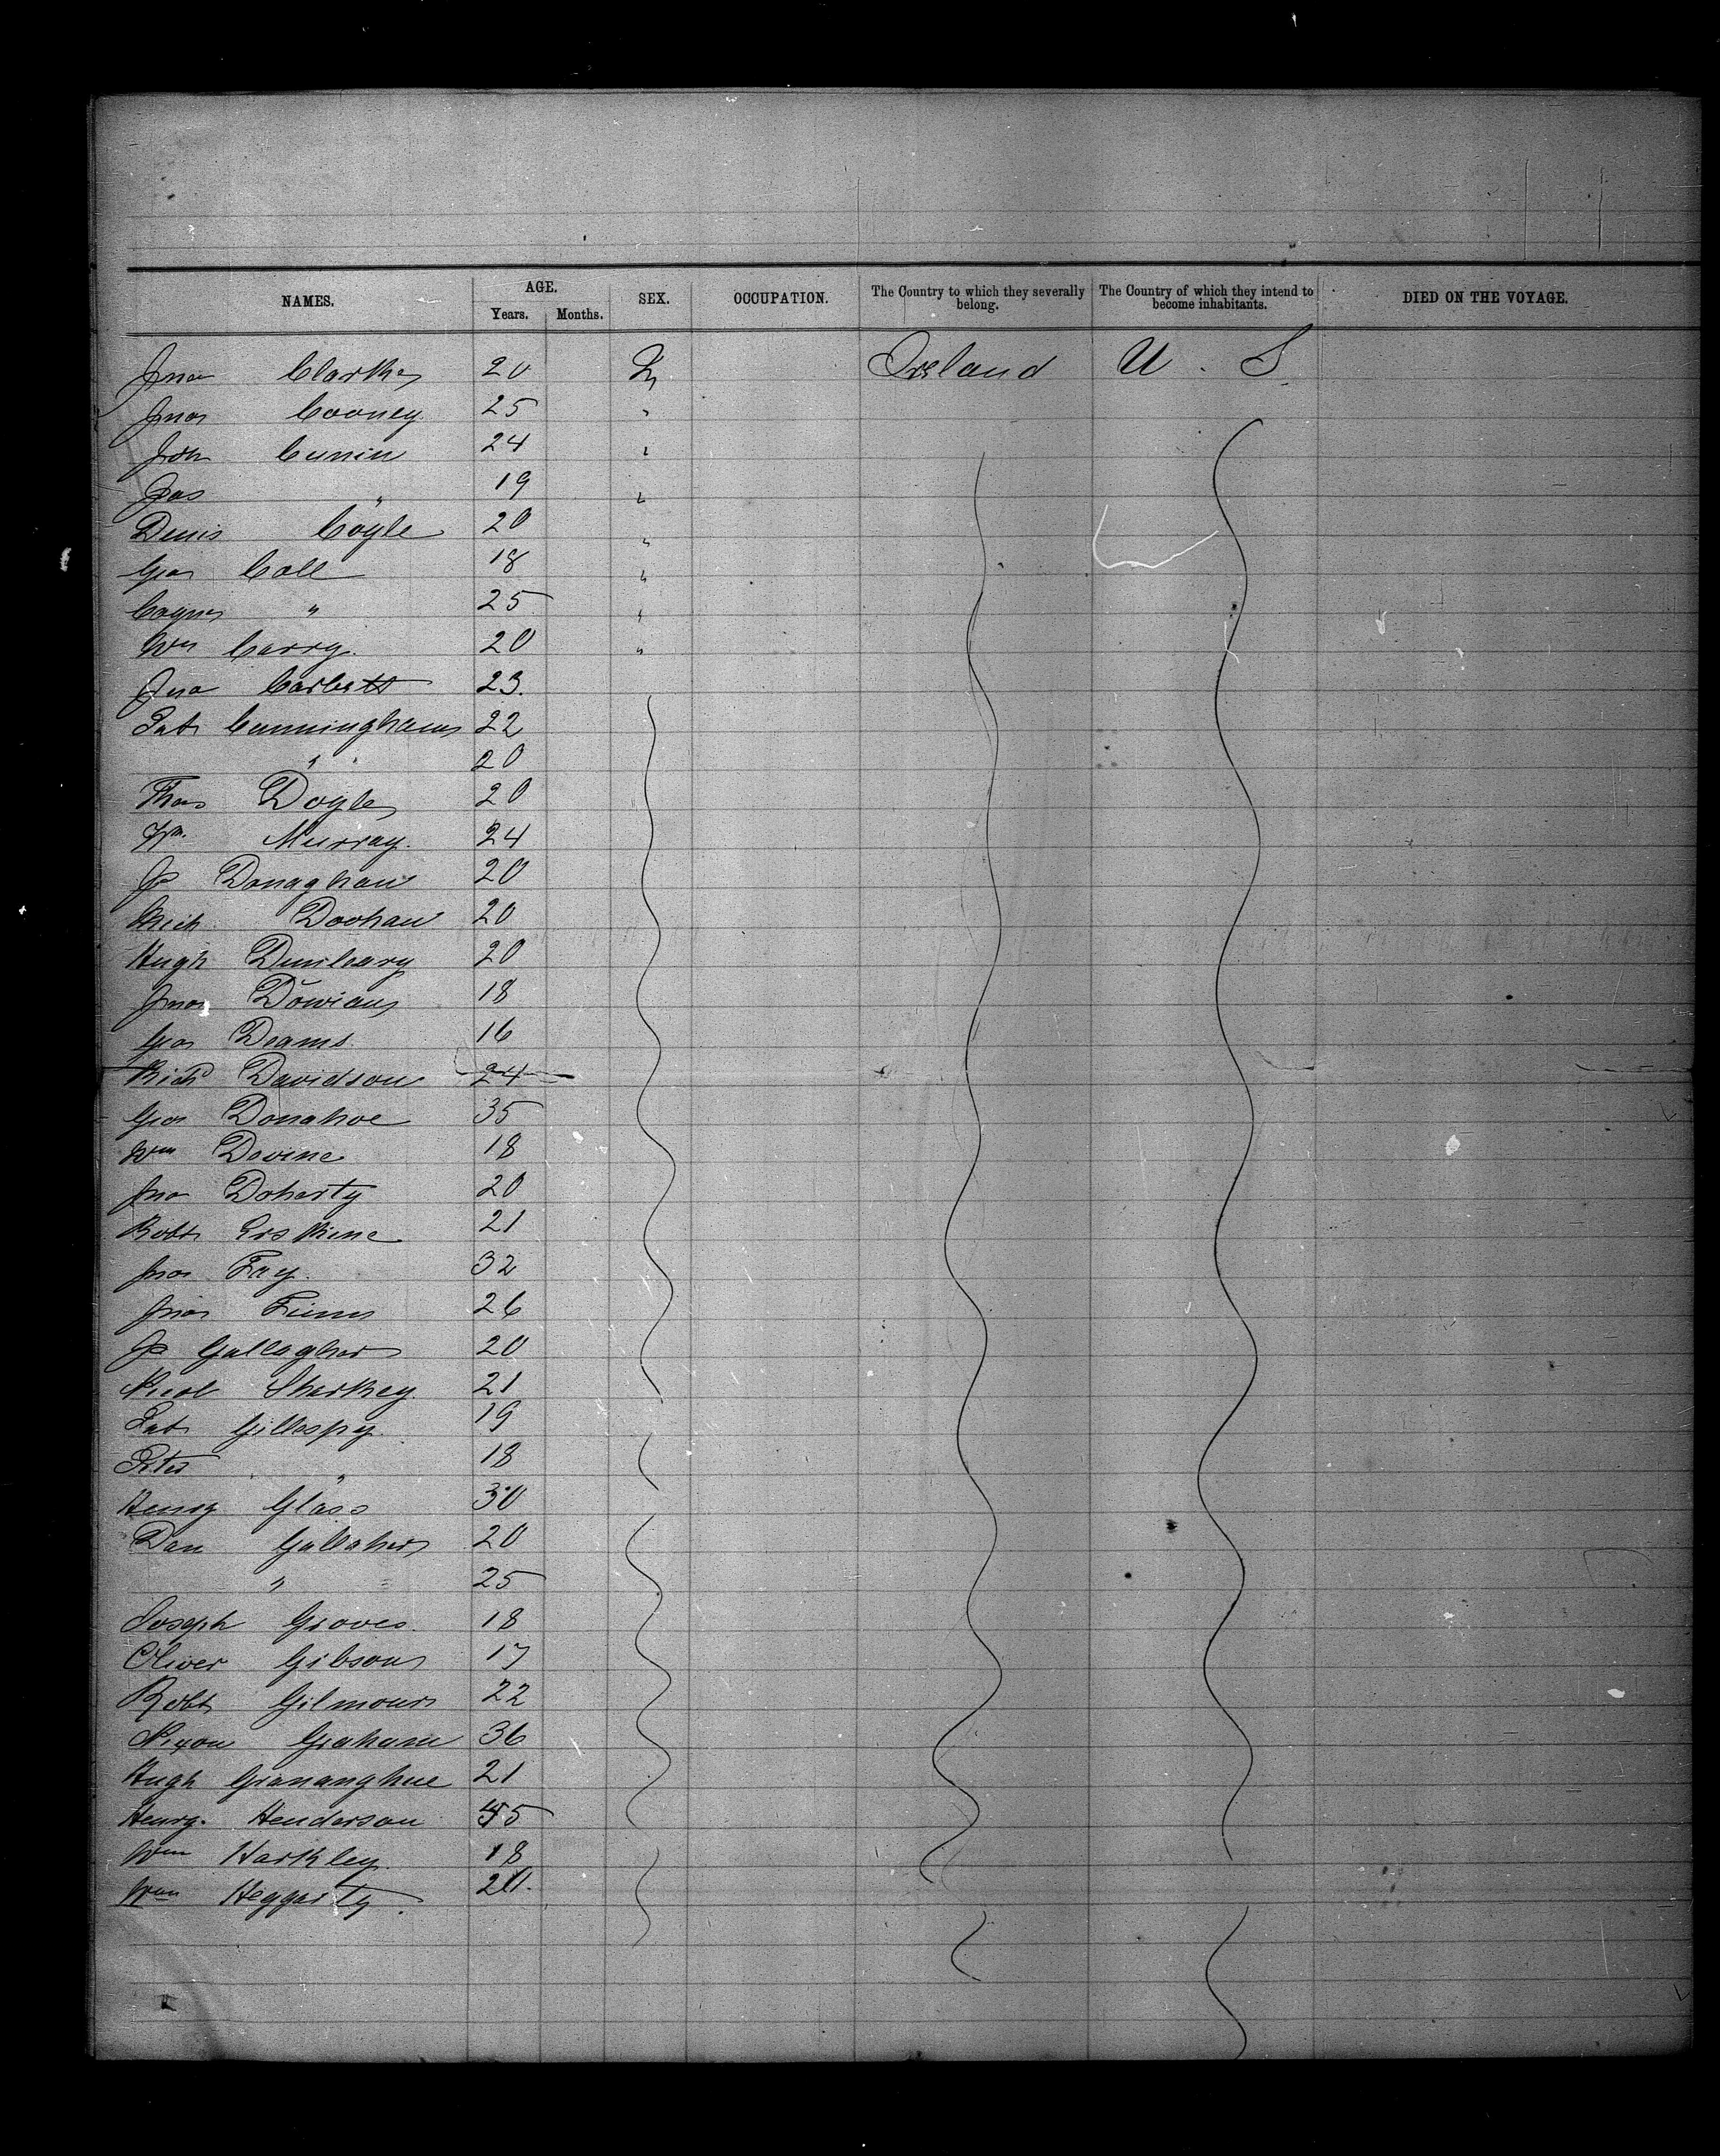 NAMES. AGE. SEX. OCCUPATION. The Country to which they severally belong. The Country of which they intend to become inhabitants. DIED ON THE VOYAGE.
Years. Months.
Jno Clarke 20 Ireland U. S
Jno Cooney 25 "
John Cunin 24 "
Jas " 19 "
Denis Coyle 20 "
Geo Coll 18 "
" 25 "
Wm Carry. 20 "
Jno Corbett 23.
Pat Cunningham 22
" 20
Thos Doyle 20
Wm. Murray. 24
Jo Donaghau 20
Mich Doohan 20
Hugh Dunleavy 20
Jno 18
Geo Deams. 16
Richd Davidson 24
Geo Donahoe 35
Wm Devine 18
Jno Doherty 20
Robt Erskine 21
Jno Fay. 32
Jno Finn 26
Jo Gallagher 20
Nicol Sharkey. 21
Pat Gillespy. 19
Peter " 18
Henry Glass 30
Dan Gallaher 20
" 25
Joseph Groves. 18
Oliver Gibson 17
Robt Gilmour 22
Nixon Graham 36
Hugh Grananghue 21
Henry. Henderson 45
Wm Harkley. 18
Wm Heggarty. 20.